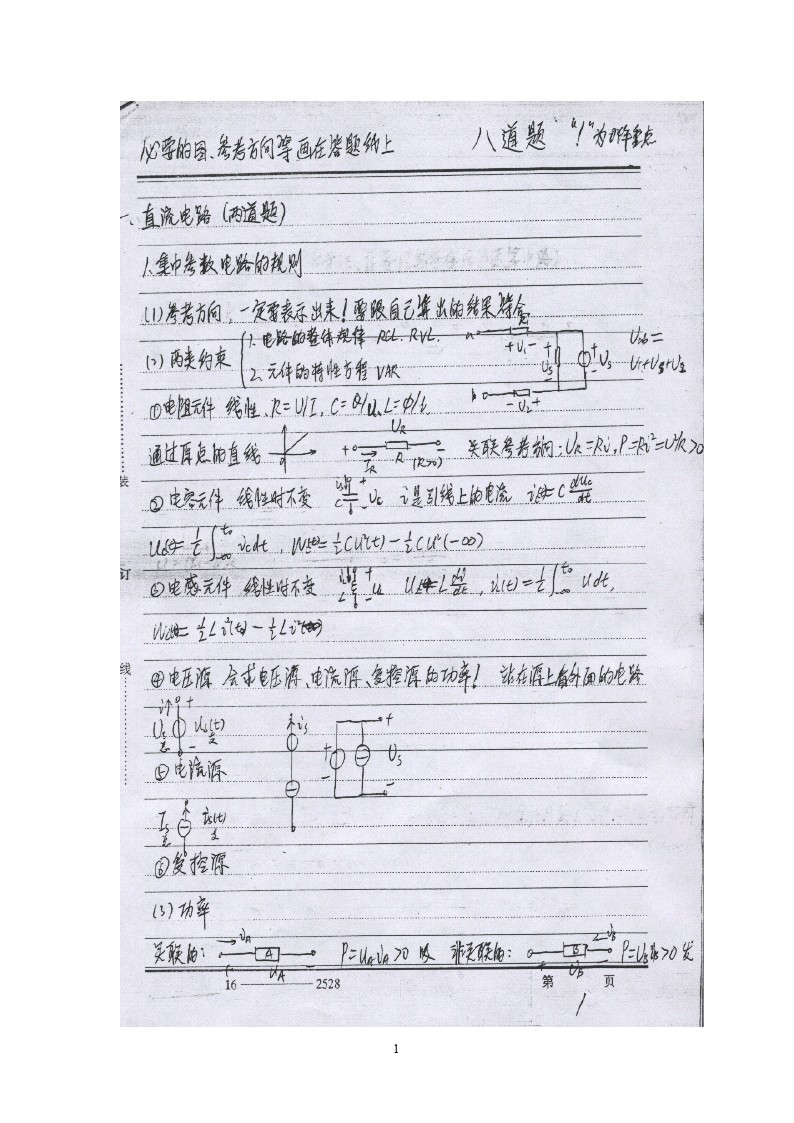 必要的图、参考方向等画在答题纸上 八道题 "!"为09年重点
一、直流电路（两道题）
1、集中参数电路的规则
(1)参考方向，一定要表示出来！要跟自己算出的结果符合
(2) 两类约束 1. 电路的整体规律 KCL. KVL.
2. 元件的特性方程 VAR
a + U₁ - + U₃ - + Us - b - U₂ + Uab =
U₁+U₃+U₂
①电阻元件 线性、R=U/I, C=Q/u, L=Φ/i
通过原点的直线 0 + UR - IR R (R>0) 关联参考方向：UR=Ri, P=Ri²=U²/R>0
② 电容元件 线性时不变 C + Uc - i是引线上的电流 i(t)=C duc/dt
Uc(t)=1/C ∫ ic dt, Wc(t)=½CU²(t)-½CU²(-∞)
③电感元件 线性时不变 L + UL - UL(t)=L di/dt, i(t)=1/L ∫ U dt,
WL(t)=½Li²(t)-½Li²(-∞)
④电压源 会求电压源、电流源、受控源的功率！ 站在源上看外面的电路
i + Us - Us(t) is + - + Us -
⑤电流源
Is is(t)
⑥受控源
(3)功率
关联的： iA + A - UA P=UAiA>0 吸 非关联的： iB + B - UB P=UBiB>0 发
装
订
线
16 2528 第 1 页
1